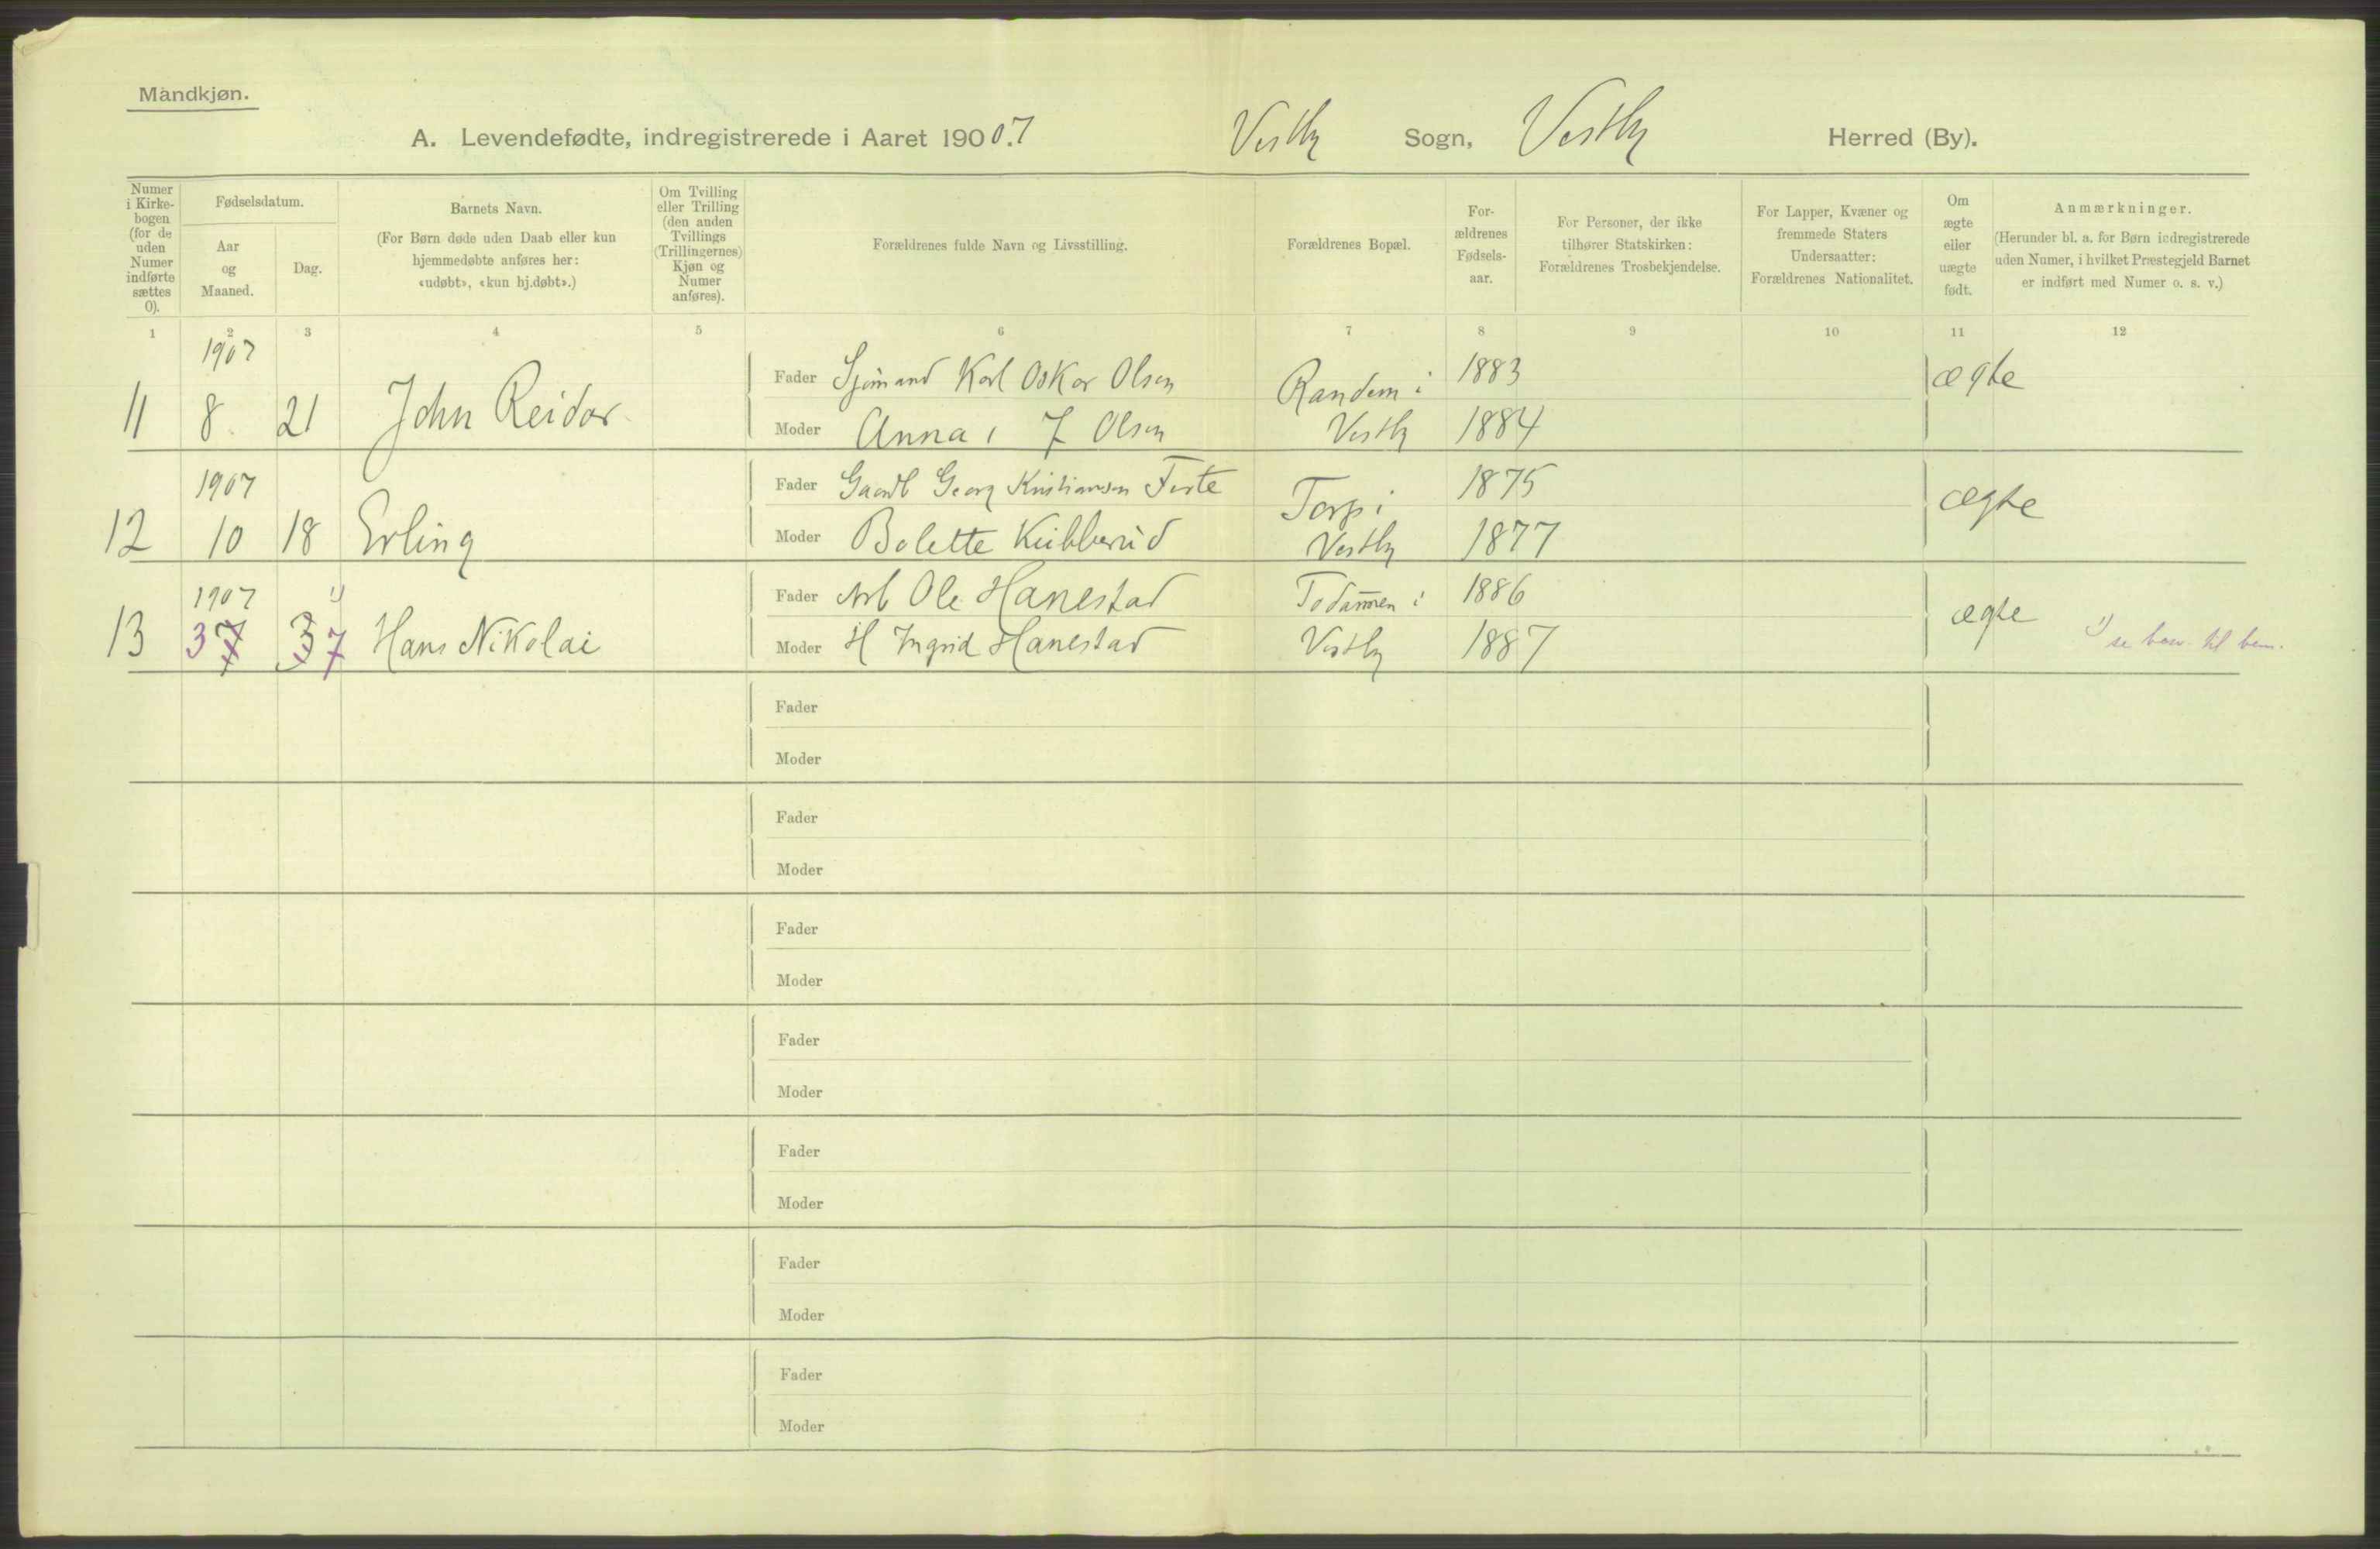 Mandkjøn.
A. Levendefødte, indregistrerede i Aaret 1900.7 Vestby Sogn, Vestby Herred (By).
Numer i Kirke-bogen (for de uden Numer indførte sættes 0).
Fødselsdatum.
Aar og Maaned.
Dag.
Barnets Navn.
(For Børn døde uden Daab eller kun hjemmedøbte anføres her: «udøbt», «kun hj.døbt».)
Om Tvilling eller Trilling (den anden Tvillings (Trillingernes) Kjøn og Numer anføres).
Forældrenes fulde Navn og Livsstilling.
Forældrenes Bopæl.
For-ældrenes Fødsels-aar.
For Personer, der ikke tilhører Statskirken: Forældrenes Trosbekjendelse.
For Lapper, Kvæner og fremmede Staters Undersaatter: Forældrenes Nationalitet.
Om ægte eller uægte født.
Anmærkninger.
(Herunder bl. a. for Børn indregistrerede uden Numer, i hvilket Præstegjeld Barnet er indført med Numer o. s. v.)
1 2 3 4 5 6 7 8 9 10 11 12
1907
Fader Sjømand Karl Oskar Olsen Randem i 1883 ægte
11 8. 21 John Reidar
Moder Anna J Olsen Vestby 1884
1907
Fader Gaardb Georg Kristiansen Torp i 1875 ægte
12 10 18 Erling
Moder Bolette Kubberud Vestby 1877
1907 1)
Fader Arb Ole Hanestad i 1886 ægte
13 3 7 3 7 Hans Nikolai
Moder H Ingrid Hanestad Vestby 1887 1) se til bem.
Fader
Moder
Fader
Moder
Fader
Moder
Fader
Moder
Fader
Moder
Fader
Moder
Fader
Moder